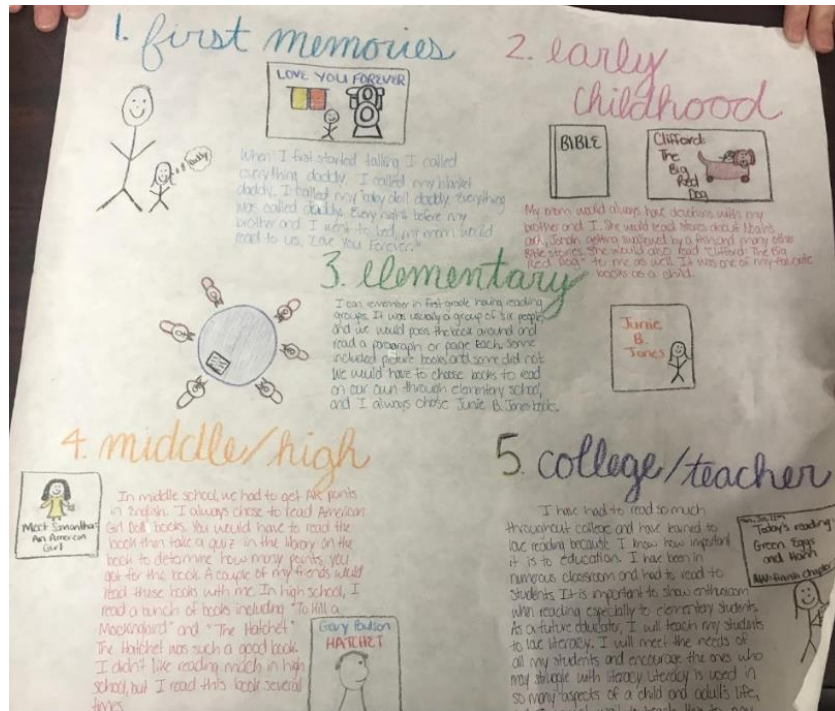 1. first memories
LOVE YOU FOREVER
daddy
When I first started talking I called
everything daddy. I called my blanket
daddy. I called my baby doll daddy. Everything
was called daddy. Every night before my
brother and I went to bed, my mom would
read to us, "Love You Forever."
2. early
childhood
BIBLE
Clifford:
The
Big
Red
Dog
My mom would always have devotions with my
brother and I. She would read stories about Noah's
ark, Jonah getting swallowed by a fish and many other
Bible stories. She would also read "Clifford: The Big
Red Dog" to me as well. It was one of my favorite
books as a child.
3. elementary
I can remember in first grade having reading
groups. It was usually a group of six people
and we would pass the book around and
read a paragraph or page each. Some
included picture books and some did not.
We would have to choose books to read
on our own through elementary school,
and I always chose Junie B. Jones books.
Junie
B.
Jones
4. middle/high
Meet Samantha:
An American
Girl
In middle school, we had to get AR points
in English. I always chose to read American
Girl Doll books. You would have to read the
book then take a quiz in the library on the
book to determine how many points you
got for the book. A couple of my friends would
read these books with me. In high school, I
read a bunch of books including "To Kill a
Mockingbird" and "The Hatchet".
The Hatchet was such a good book.
I didn't like reading much in high
school, but I read this book several
times.
Gary Paulson
HATCHET
5. college/teacher
I have had to read so much
throughout college and have learned to
love reading because I know how important
it is to education. I have been in
numerous classroom and had to read to
students. It is important to show enthusiasm
when reading especially to elementary students.
As a future educator, I will teach my students
to love literacy. I will meet the needs of
all my students and encourage the ones who
may struggle with literacy. Literacy is used in
so many aspects of a child and adult's life,
Today's reading
Green Eggs
and Ham